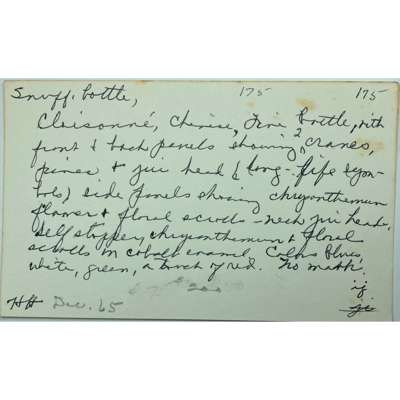 Snuff bottle, 175 175
Cloisonné, Chinese, Fine Bottle, with
front & back panels showing 2 cranes,
pines & jui head (long-life sym-
bols) side panels showing chrysanthemum
flower & floral scrolls - neck jui head,
self stopper, chrysanthemum & floral
scrolls in cobalt enamel. Colors blues,
white, green, a touch of red. No mark.
if
HH Dec. 65